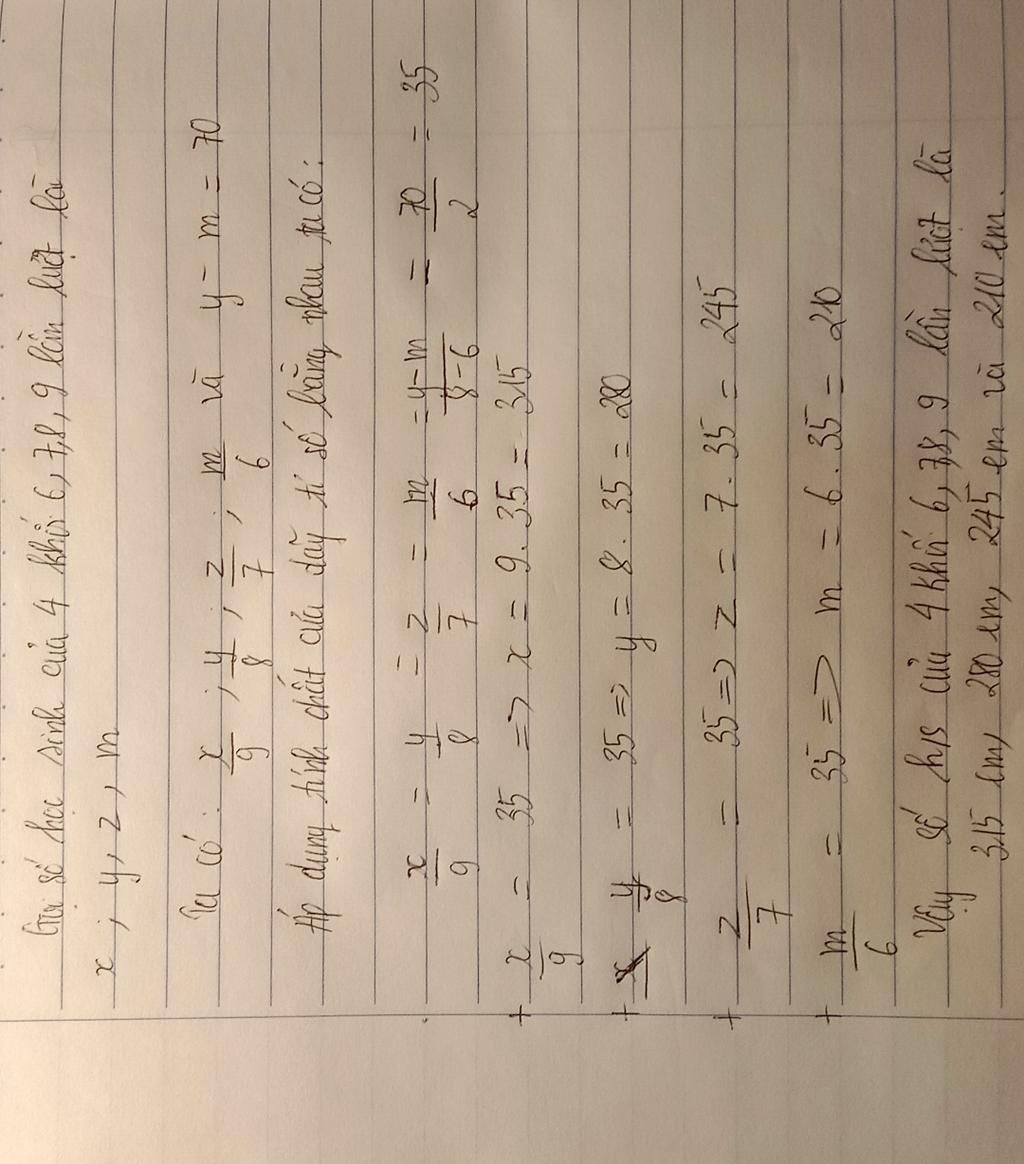 Gọi số học sinh của 4 khối 6, 7, 8, 9 lần lượt là
x ; y, z, m
Ta có. x/9 ; y/8 ; z/7 ; m/6 và y - m = 70
Áp dụng tính chất của dãy tỉ số bằng nhau ta có:
x/9 = y/8 = z/7 = m/6 = y-m/8-6 = 70/2 = 35
+ x/9 = 35 => x = 9.35 = 315
+ y/8 = 35 => y = 8.35 = 280
+ z/7 = 35 => z = 7.35 = 245
+ m/6 = 35 => m = 6.35 = 210
Vậy số h/s của 4 khối 6, 7, 8, 9 lần lượt là
315 em, 280 em, 245 em và 210 em.